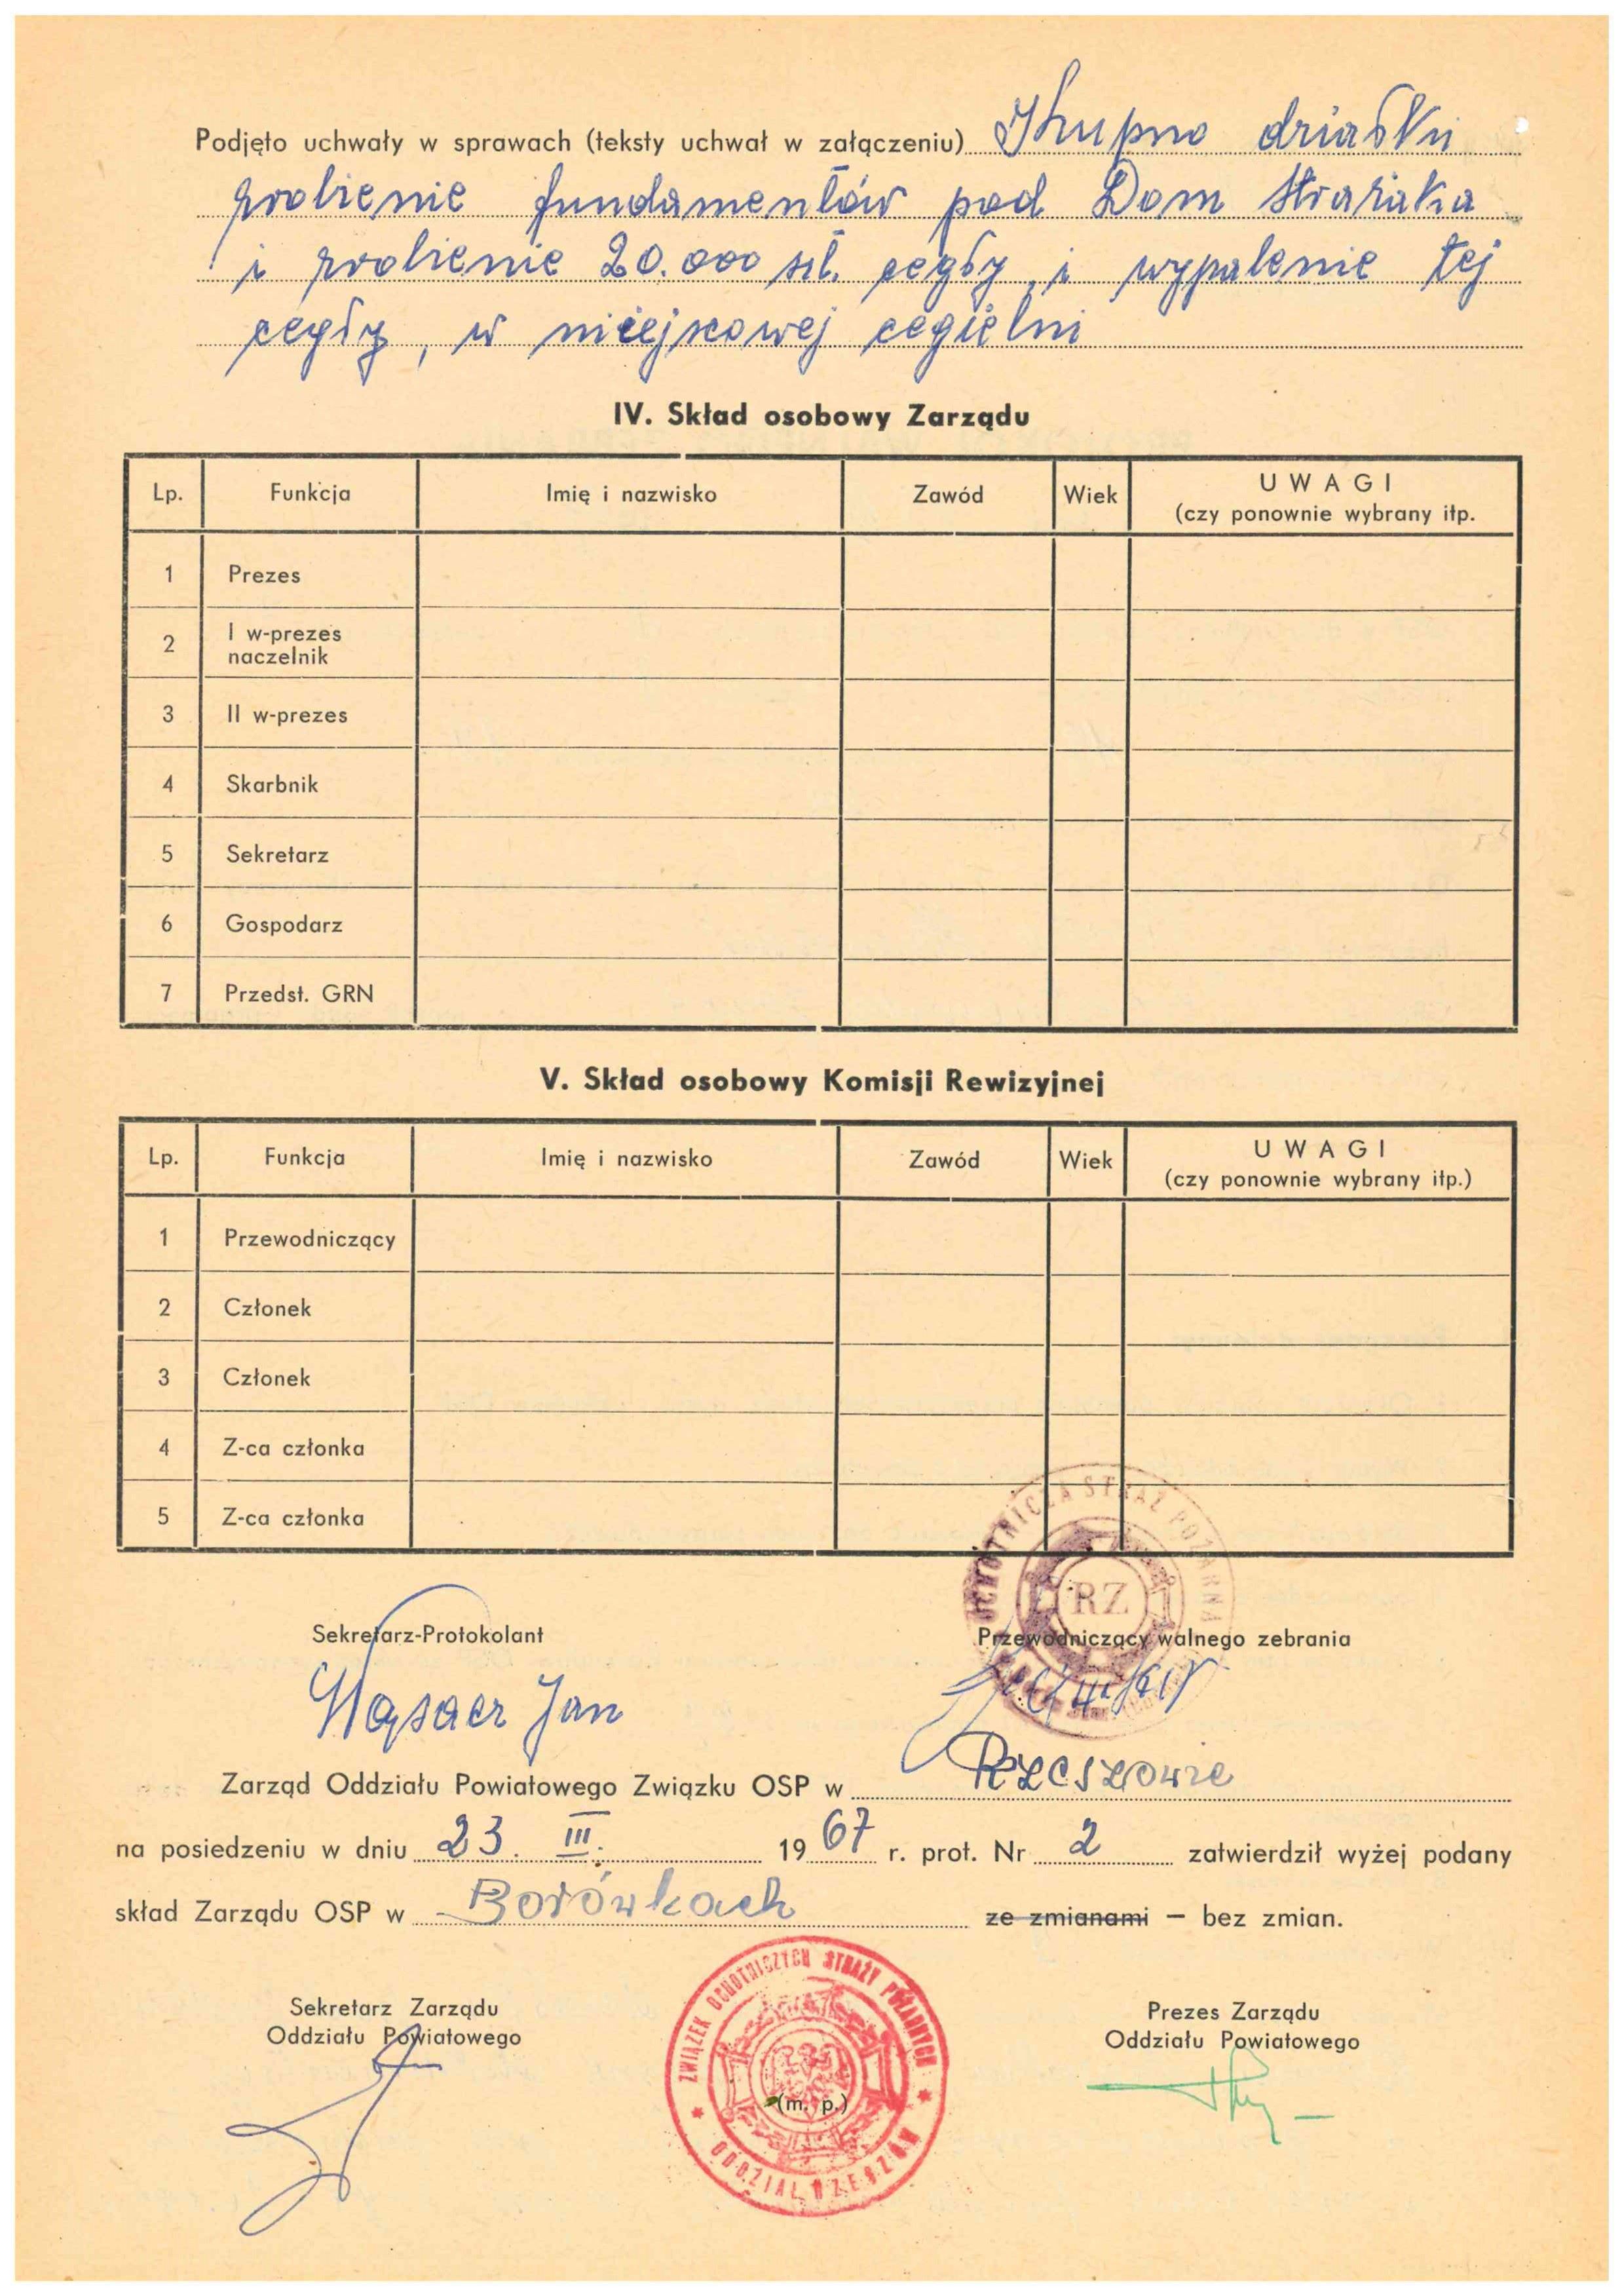 Podjęto uchwały w sprawach (teksty uchwał w załączeniu) Kupno działki
zrobienie fundamentów pod Dom strażaka
i zrobienie 20.000 szt. cegły i wypalenie tej
cegły, w miejscowej cegielni
IV. Skład osobowy Zarządu
Lp. Funkcja Imię i nazwisko Zawód Wiek UWAGI
(czy ponownie wybrany itp.
1 Prezes
2 I w-prezes
naczelnik
3 II w-prezes
4 Skarbnik
5 Sekretarz
6 Gospodarz
7 Przedst. GRN
V. Skład osobowy Komisji Rewizyjnej
Lp. Funkcja Imię i nazwisko Zawód Wiek UWAGI
(czy ponownie wybrany itp.)
1 Przewodniczący
2 Członek
3 Członek
4 Z-ca członka
5 Z-ca członka
OCHOTNICZA STRAŻ POŻARNA
RZ
Sekretarz-Protokolant Przewodniczący walnego zebrania
Wąsacz Jan
Zarząd Oddziału Powiatowego Związku OSP w Rzeszowie
na posiedzeniu w dniu 23. III. 1967 r. prot. Nr 2 zatwierdził wyżej podany
skład Zarządu OSP w Borówkach ze zmianami — bez zmian.
ZWIĄZEK OCHOTNICZYCH STRAŻY POŻARNYCH
ODDZIAŁ RZESZÓW
Sekretarz Zarządu Prezes Zarządu
Oddziału Powiatowego Oddziału Powiatowego
(m. p.)